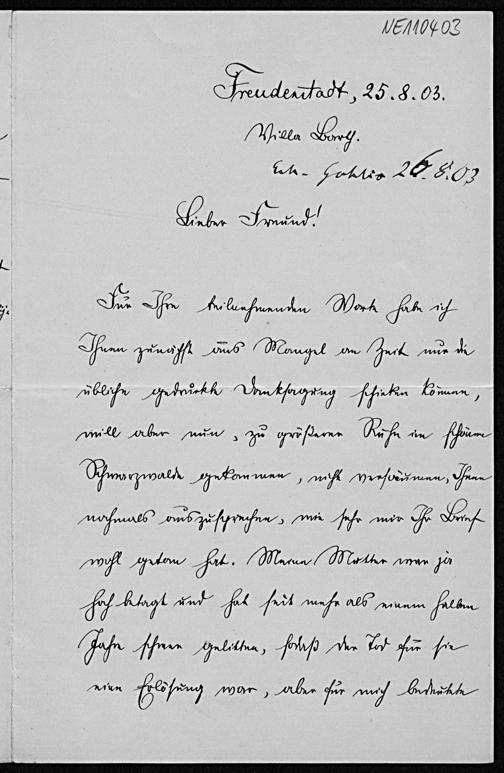 NE110403
Freudenstadt, 25.8.03.
Villa Barth.
26.8.03
Lieber Freund!
Für Ihre teilnehmenden Worte habe ich
Ihnen zunächst aus Mangel an Zeit nur die
übliche gedruckte Danksagung schicken können,
will aber nun, zu größerer Ruhe im schönen
Schwarzwalde gekommen, nicht versäumen, Ihnen
nochmals auszusprechen, wie sehr mir Ihr Brief
wohl getan hat. Meine Mutter war ja
hochbetagt und hat seit mehr als einem halben
Jahre schwer gelitten, sodaß der Tod für sie
eine Erlösung war, aber für mich bedeutete